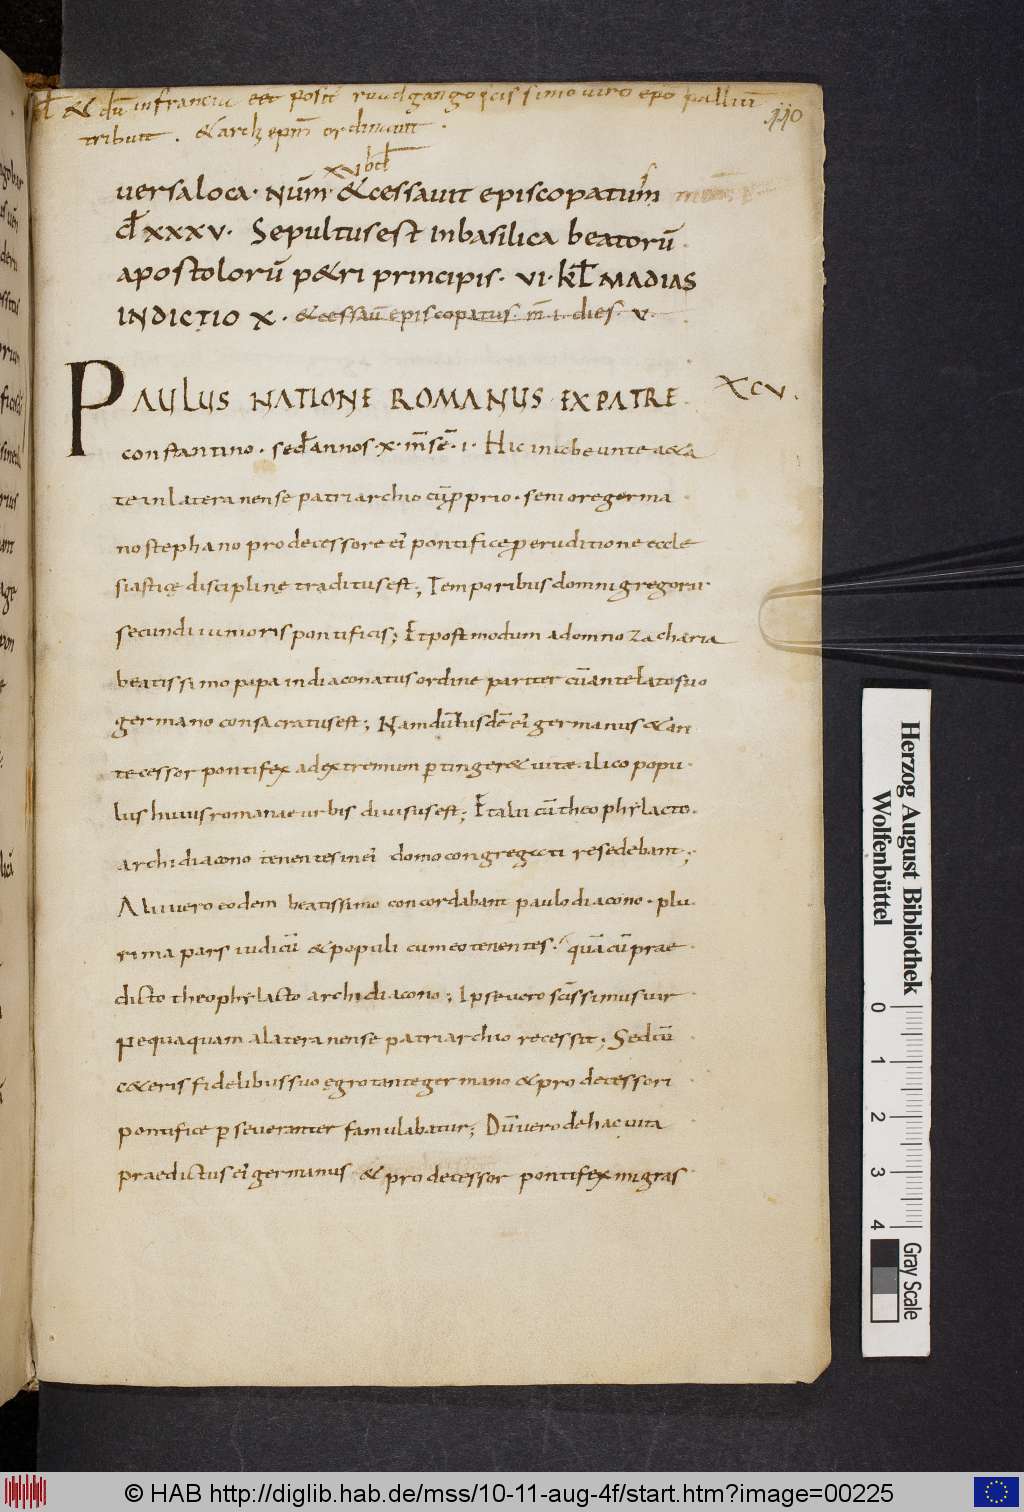 & dū in francia eet posit ruodgango scissimo viro epo pallium
tribuit . & archepm ordinauit .
110
xvi kl
uersa loca· Nūm· & cessauit episcopatum
cł xxxv· Sepultus est in basilica beatorū
apostolorū p&ri principis· VI· kł MADIAS
INDICTIO X· & cessaū episcopatus· m̄·1·dies·v·
PAULUS NATIONE ROMANUS EX PATRE· XCV.
constantino· sed̄ annos·x·m̄se·1· Hic in iebeunte a&a
te in lateranense patriarchio cū proprio· seniore germa
no stephano prodecessore ei pontifice p eruditione eccle
siastice discipline traditus est; Temporibus domni gregorii·
secundi iunioris pontificis; Et postmodum a domno zacharia
beatissimo papa in diaconatus ordine pariter cū antelato suo
germano consacratus est; Nam dū isdē ei germanus & an
tecessor pontifex ad extremum ptinger& uitæ· ilico popu·
lus huius romanae urbis diuisus est; Et alii cū theophylacto·
archidiacono tenentes in ei domo congregati resedebant;
Alii uero eodem beatissimo concordabant paulo diacono· plu
rima pars iudicū & populi cum eo tenentes· quā cū prae·
dicto theophylacto archidiacono; Ipse uero scissimus uir
nequaquam a lateranense patriarchio recessit; Sed cū
c&eris fidelibus suo egrotante germano & prodecessori
pontifice pseueranter famulabatur; Dū uero de hac uita
praedictus ei germanus & prodecessor pontifex migras·
Herzog August Bibliothek
Wolfenbüttel
0 1 2 3 4
Gray Scale
© HAB http://diglib.hab.de/mss/10-11-aug-4f/start.htm?image=00225